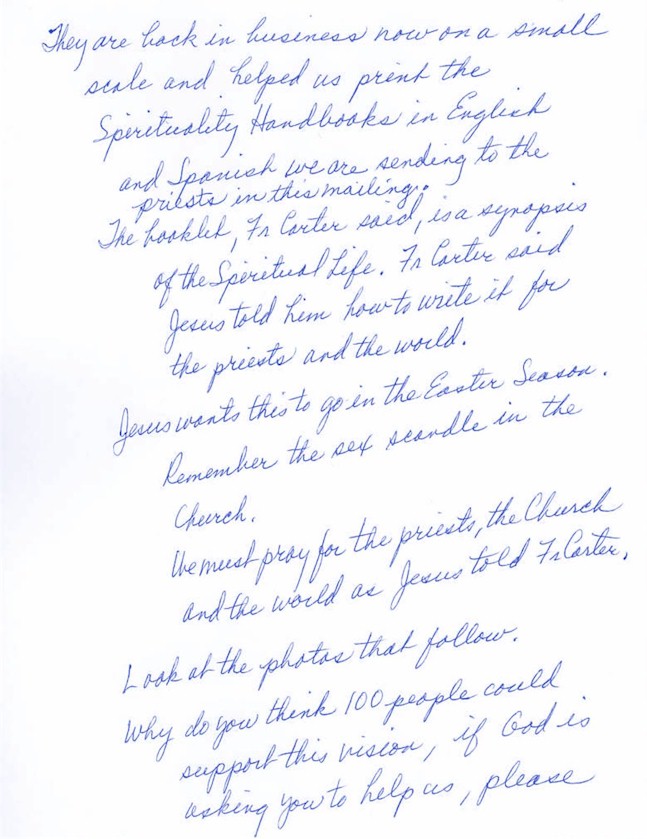 They are back in business now on a small
scale and helped us print the
Spirituality Handbooks in English
and Spanish we are sending to the
priests in this mailing.
The booklet, Fr Carter said, is a synopsis
of the Spiritual Life. Fr Carter said
Jesus told him how to write it for
the priests and the world.
Jesus wants this to go in the Easter Season.
Remember the sex scandle in the
Church.
We must pray for the priests, the Church
and the world as Jesus told Fr Carter.
Look at the photos that follow.
Why do you think 100 people could
support this vision, if God is
asking you to help us, please